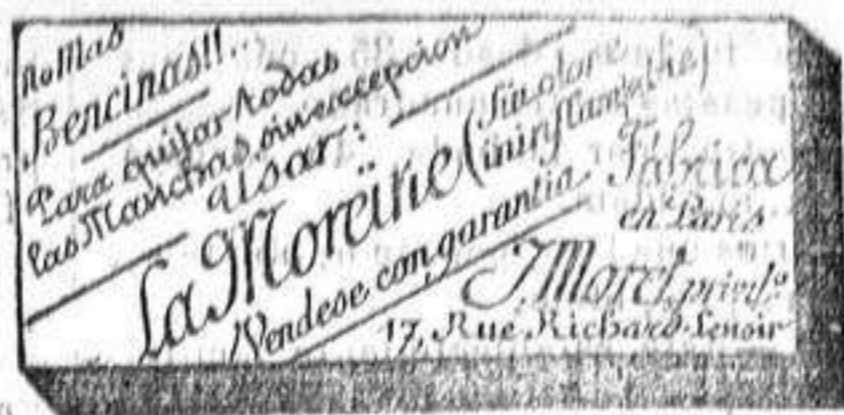 No Mas
Bencinas!!..
Para quitar todas
las Manchas sin excepcion
Usar:
La Moreïne (Sin olor é
ininflamable)
Vendese con garantia
Fábrica
en Paris
J. Morel, privdº
17, Rue Richard-Lenoir